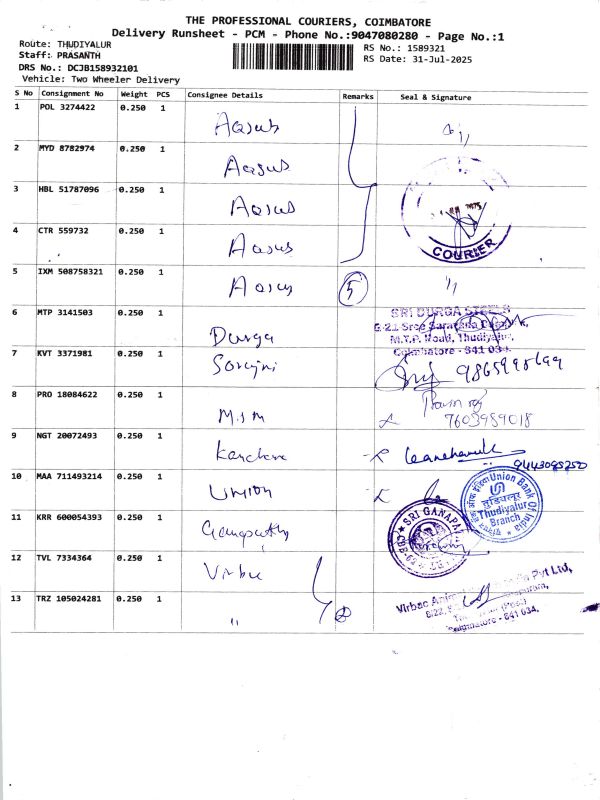 THE PROFESSIONAL COURIERS, COIMBATORE
Delivery Runsheet - PCM - Phone No.:9047080280 - Page No.:1
Route: THUDIYALUR
Staff: PRASANTH
DRS No.: DCJB158932101
Vehicle: Two Wheeler Delivery
RS No.: 1589321
RS Date: 31-Jul-2025
S No Consignment No Weight PCS Consignee Details Remarks Seal & Signature
1 POL 3274422 0.250 1 Aasus
2 MYD 8782974 0.250 1 Aasus
3 HBL 51787096 0.250 1 Aasus
4 CTR 559732 0.250 1 Aasus
COURIER
5 IXM 508758321 0.250 1 Aasus 5 "
6 MTP 3141503 0.250 1 Durga
SRI DURGA STEELS
M.T.P. Road, Thudiyalur,
Coimbatore - 641 034.
7 KVT 3371981 0.250 1 Sorojni
8 PRO 18084622 0.250 1 M.S.M
7603989018
9 NGT 20072493 0.250 1 Kanchana
10 MAA 711493214 0.250 1 Union
Union Bank Of India
Thudiyalur
Branch
11 KRR 600054393 0.250 1 Ganapathy
SRI GANAPA
12 TVL 7334364 0.250 1 Virbac
13 TRZ 105024281 0.250 1 " 2
Virbac Pvt Ltd,
Coimbatore - 641 034.